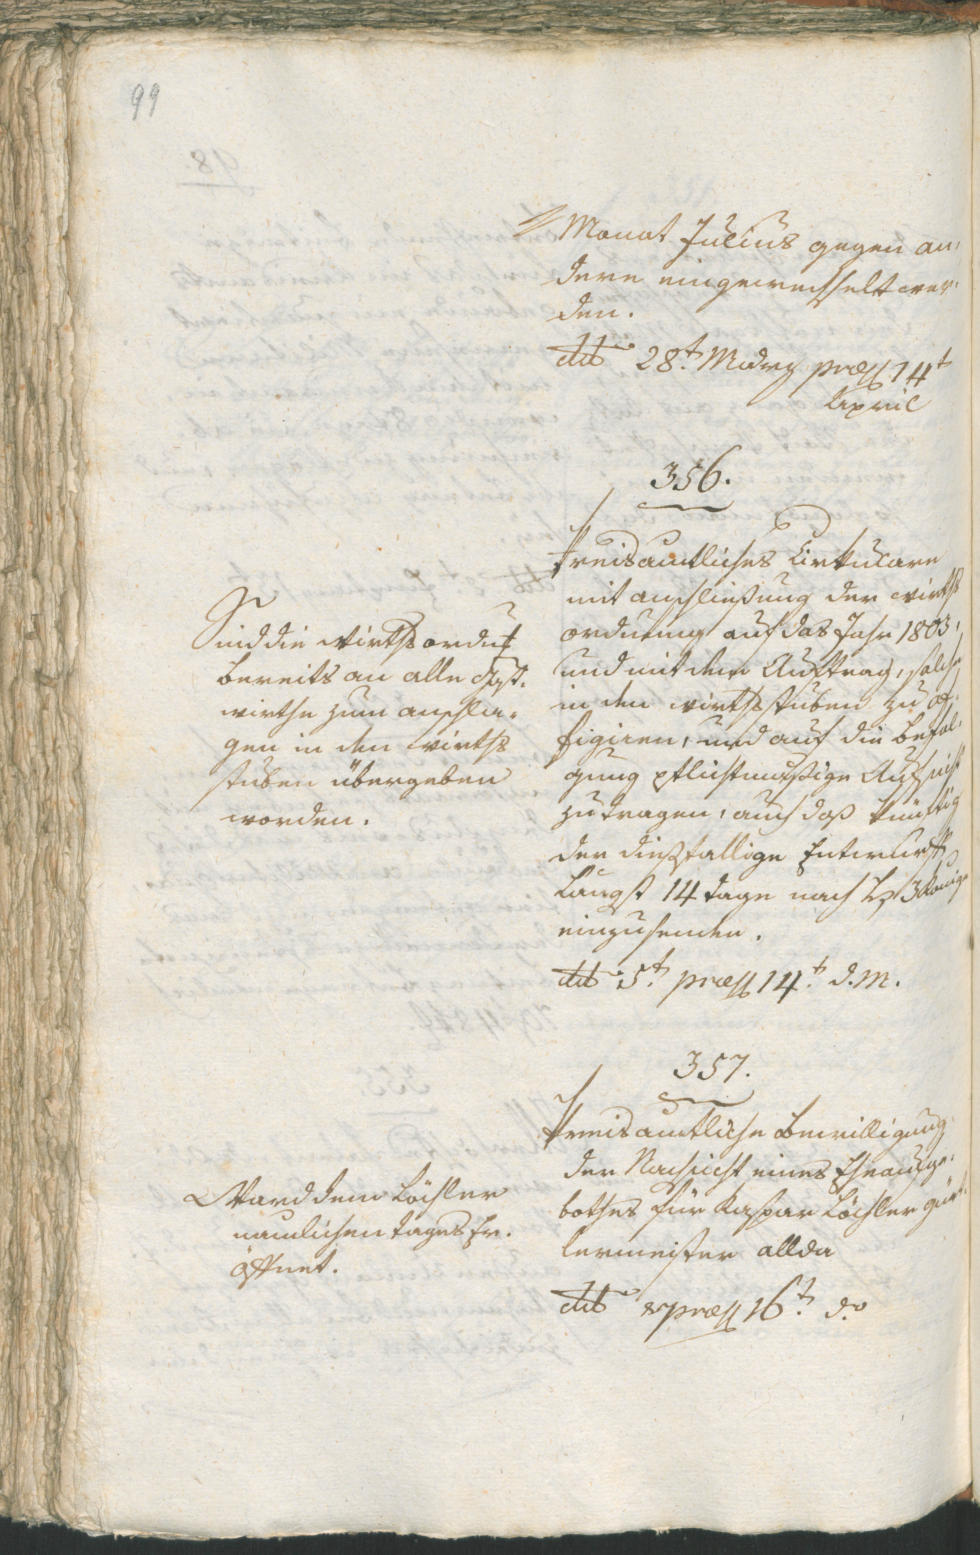 99
Monat Julius gegen an„
dere eingewechselt wer„
den.
ddto 28t. März præs 14t
April
356.
Kreisamtliches Cirkulare
mit anschließung der wirths
ordnung auf das Jahr 1803,
und mit dem Auftrag, solche
in den wirthsstuben zu af„
figiren, und auf die befol„
gung pflichtmäßige Aufsicht
zu tragen, auch daß künftig
der dießfällige Entwurf
längst 14 tage nach 3 König
einzusenden.
ddto 5t. præs 14t. d. M.
Sind die wirthsordng
bereits an alle
wirthe zum anschla„
gen in den wirths
stuben übergeben
worden.
357.
Kreisamtliche Bewilligung
der Nachsicht eines Eheaufge„
bothes für Kaspar Löchler gürt„
lermeister allda
ddto & præs 16t. do
Ward dem Löchler
nämlichen tages er„
öffnet.